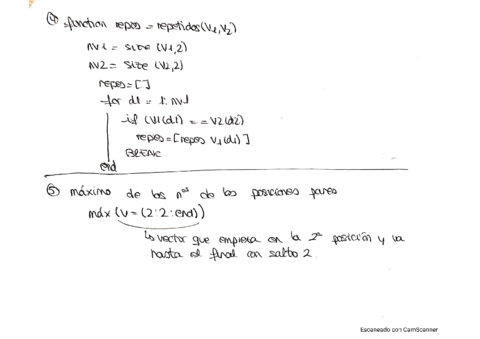 ④ function repes = repetidos(V1,V2)
nv1 = size (V1,2)
nv2 = size (V2,2)
repes = []
for d1 = 1:nv1
if (V1(d1) == V2(d2)
repes = [repes V1(d1)]
BREAK
end
⑤ máximo de los nos de las posiciones pares
máx (V = (2:2:end))
↳ vector que empieza en la 2ª posición y va
hasta el final con salto 2.
Escaneado con CamScanner